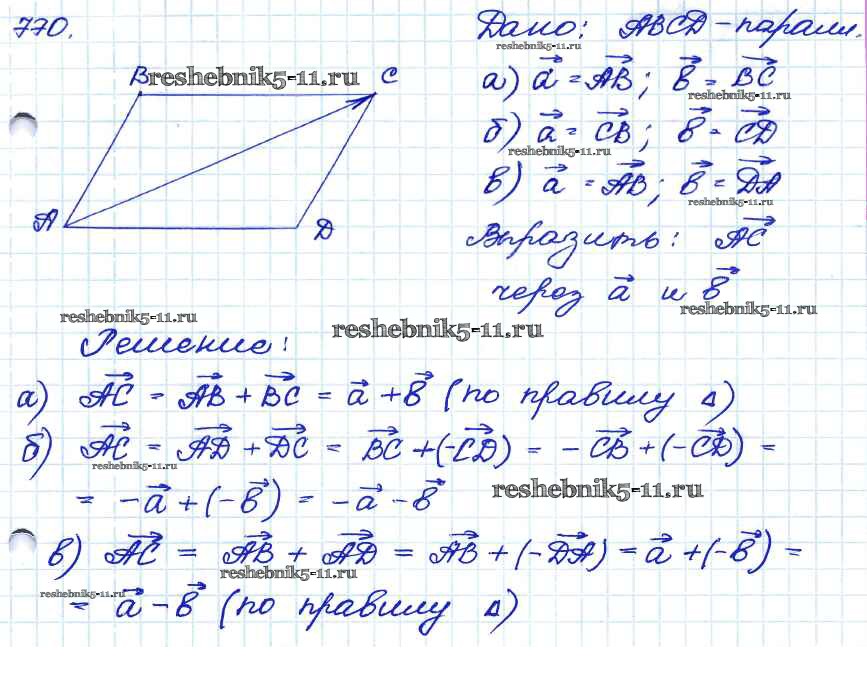 770.
Дано: ABCD - парал.
B reshebnik5-11.ru C
а) a⃗ = AB⃗; b⃗ = BC⃗
reshebnik5-11.ru
б) a⃗ = CB⃗; b⃗ = CD⃗
reshebnik5-11.ru
reshebnik5-11.ru
в) a⃗ = AB⃗; b⃗ = DA⃗
reshebnik5-11.ru
A D
Выразить: AC⃗
через a⃗ и b⃗
reshebnik5-11.ru
reshebnik5-11.ru
reshebnik5-11.ru
Решение:
а) AC⃗ = AB⃗ + BC⃗ = a⃗ + b⃗ (по правилу Δ)
б) AC⃗ = AD⃗ + DC⃗ = BC⃗ + (-CD⃗) = - CB⃗ + (-CD⃗) =
reshebnik5-11.ru
= -a⃗ + (-b⃗) = -a⃗ - b⃗
reshebnik5-11.ru
в) AC⃗ = AB⃗ + AD⃗ = AB⃗ + (-DA⃗) = a⃗ + (-b⃗) =
reshebnik5-11.ru
reshebnik5-11.ru
= a⃗ - b⃗ (по правилу Δ)